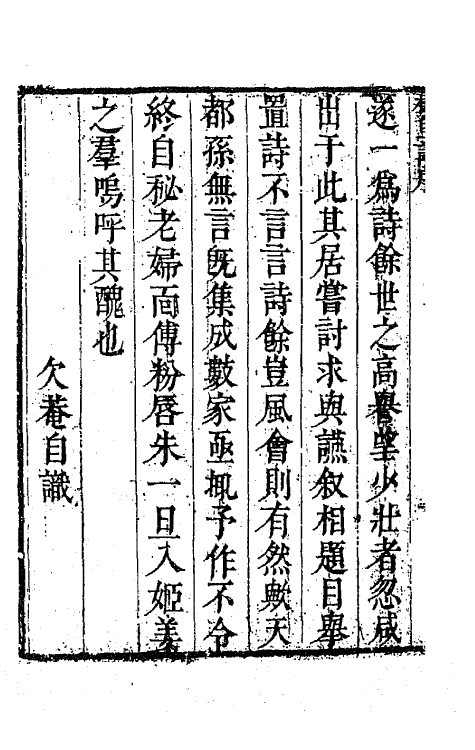 遂一爲詩餘世之高譽望少壯者忽咸
出于此其居嘗討求與讌叙相題目舉
置詩不言言詩餘豈風會則有然歟天
都孫無言旣集成數家亟掫予作不令
終自秘老婦面傅粉唇朱一旦入姬姜
之羣嗚呼其醜也
欠菴自識